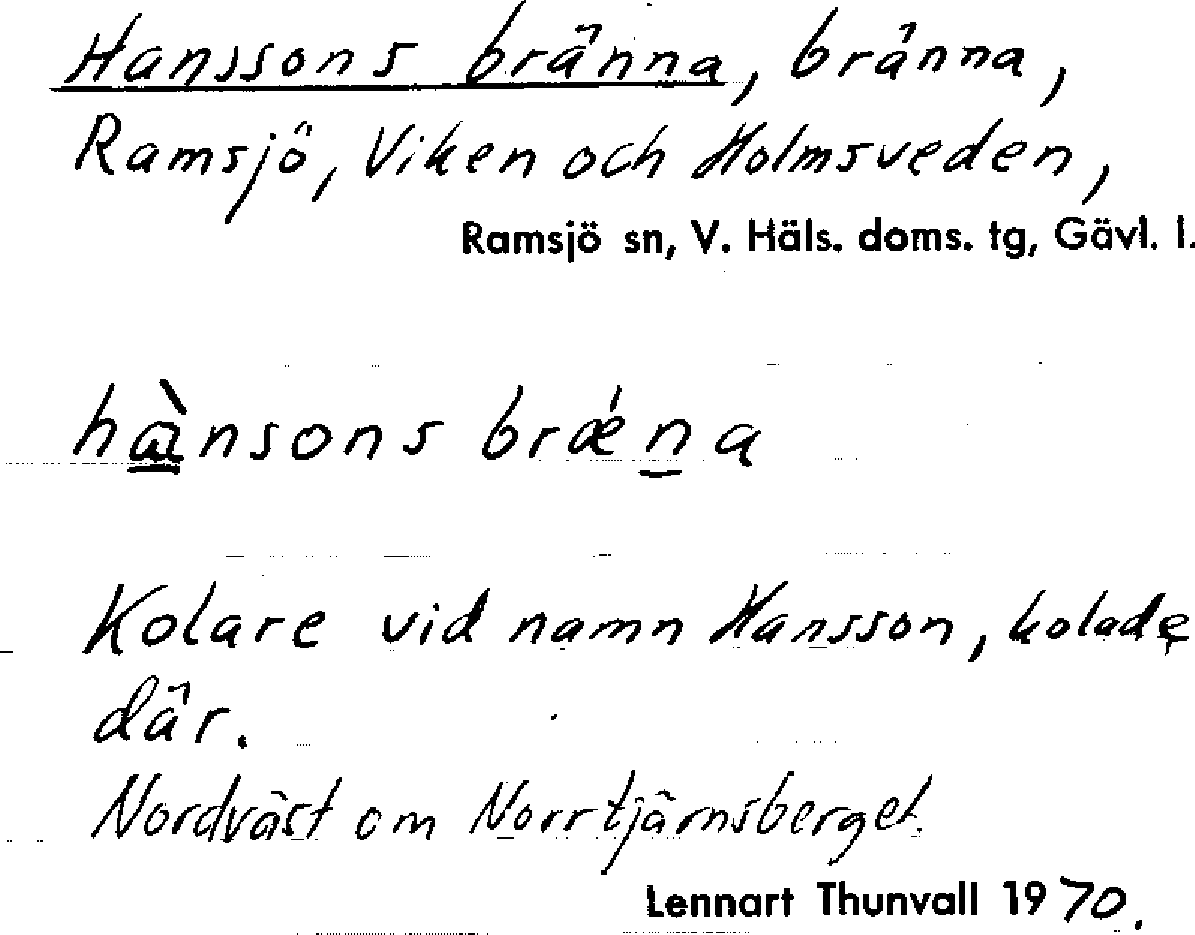 Hanssons bränna, bränna,
Ramsjö, Viken och Holmsveden,
Ramsjö sn, V. Häls. doms. tg, Gävl. l.
hànsons brǽna
Kolare vid namn Hansson, kolade
där.
Nordväst om Norrtjärnsberget.
Lennart Thunvall 1970.